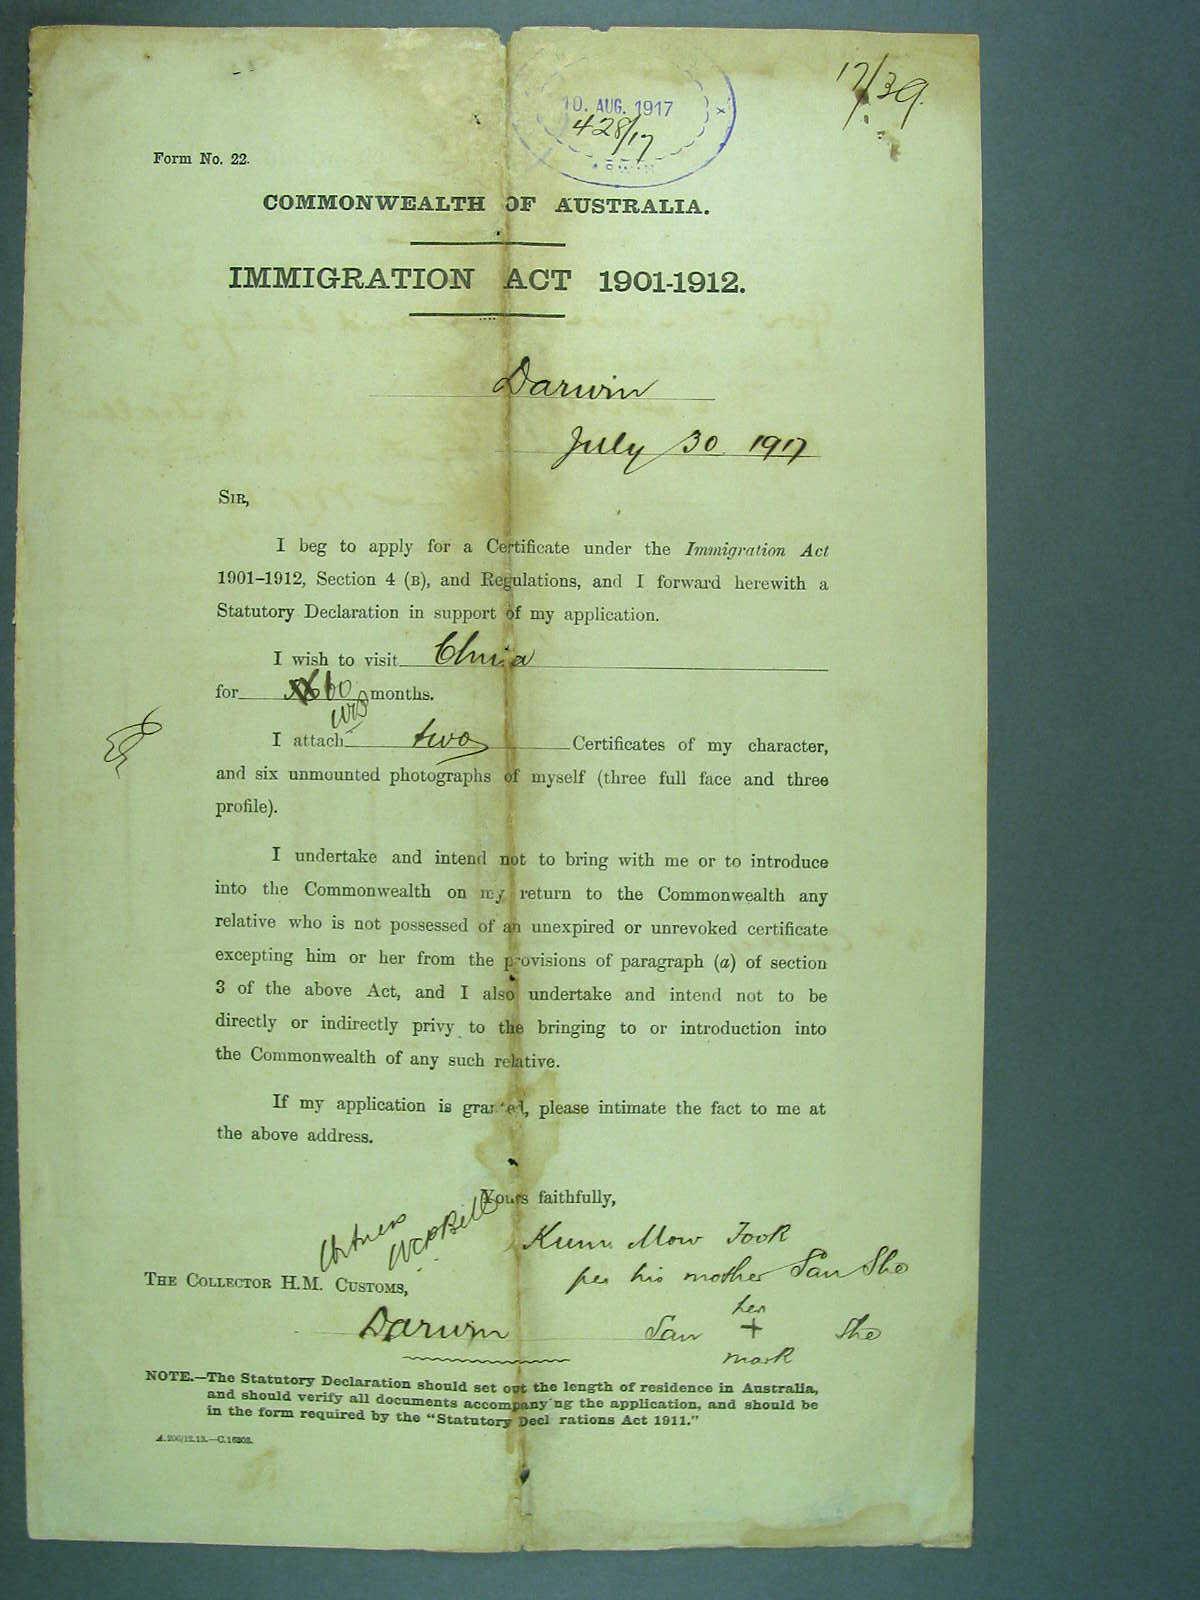 17/39.
10. AUG. 1917
428/17
Form No. 22.
COMMONWEALTH OF AUSTRALIA.
IMMIGRATION ACT 1901-1912.
Darwin
July 30 1917
SIR,
I beg to apply for a Certificate under the Immigration Act
1901–1912, Section 4 (B), and Regulations, and I forward herewith a
Statutory Declaration in support of my application.
I wish to visit China
for 60 months.
I attach two Certificates of my character,
and six unmounted photographs of myself (three full face and three
profile).
I undertake and intend not to bring with me or to introduce
into the Commonwealth on my return to the Commonwealth any
relative who is not possessed of an unexpired or unrevoked certificate
excepting him or her from the provisions of paragraph (a) of section
3 of the above Act, and I also undertake and intend not to be
directly or indirectly privy to the bringing to or introduction into
the Commonwealth of any such relative.
If my application is granted, please intimate the fact to me at
the above address.
Yours faithfully,
Witness
Kum Mow Took
per his mother San She
THE COLLECTOR H.M. CUSTOMS,
her
Darwin San + She
mark
NOTE.—The Statutory Declaration should set out the length of residence in Australia,
and should verify all documents accompany'ng the application, and should be
in the form required by the "Statutory Decl rations Act 1911."